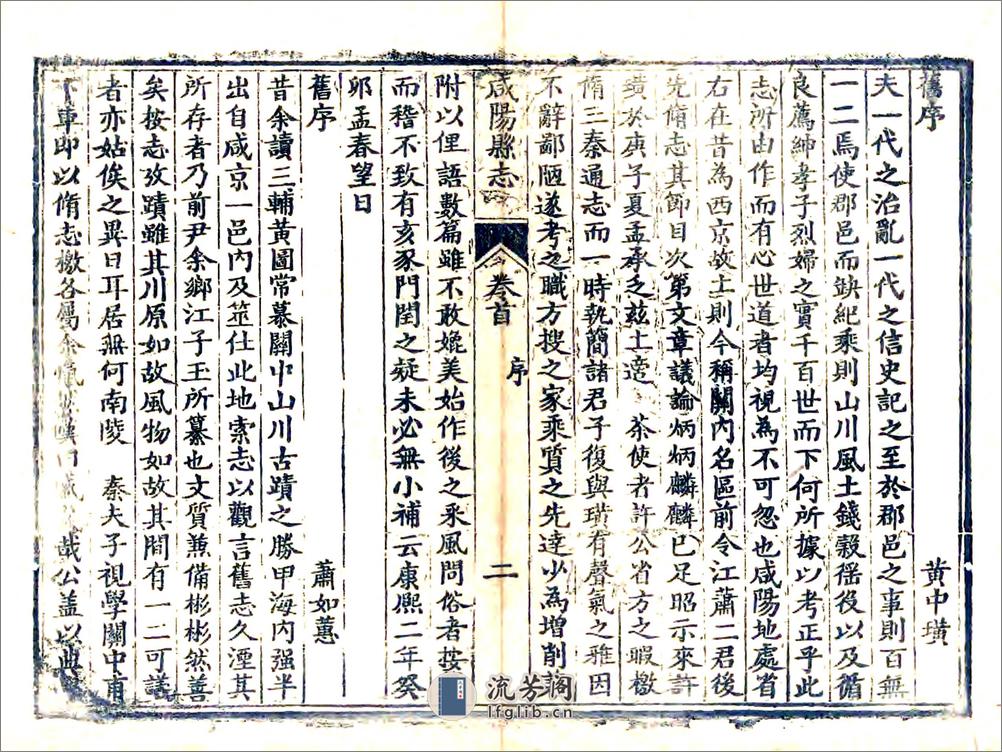 舊序　黃中璜
夫一代之治亂一代之信史記之至於郡邑之事則百無
一二焉使郡邑而缺紀乘則山川風土錢穀徭役以及循
良薦紳孝子烈婦之實千百世而下何所據以考正乎此
志所由作而有心世道者均視為不可忽也咸陽地處省
右在昔為西京故土則今稱關內名區前令江蕭二君後
先脩志其節目次第文章議論炳炳麟麟已足昭示來許
璜於庚子夏孟承乏兹土適　茶使者許公省方之暇檄
脩三秦通志而一時執簡諸君子復與璜有聲氣之雅因
不辭鄙陋遂考之職方搜之家乘質之先達少為增削
咸陽縣志　卷首　序　二
附以俚語數篇雖不敢媲美始作後之采風問俗者按
而稽不致有亥豕門閏之疑未必無小補云康熙二年癸
卯孟春望日
舊序　蕭如蕙
昔余讀三輔黃圖常慕關中山川古蹟之勝甲海內强半
出自咸京一邑內及筮仕此地索志以觀言舊志久湮其
所存者乃前尹余鄉江子玉所纂也文質兼備彬彬然善
矣按志攷蹟雖其川原如故風物如故其間有一二可議
者亦姑俟之異日耳居無何南陵　秦夫子視學關中甫
車即以脩志檄各屬余　哉公盖以典
流芳閣
lfglib.cn